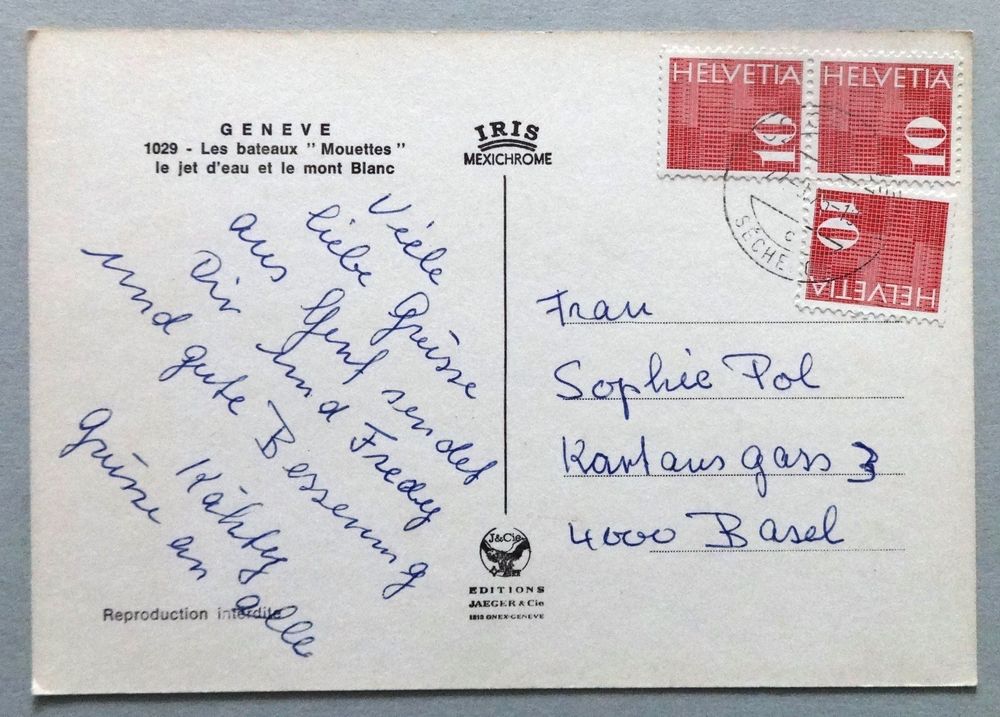 GENEVE
1029 - Les bateaux " Mouettes "
le jet d'eau et le mont Blanc
IRIS
MEXICHROME
HELVETIA
10
HELVETIA
10
HELVETIA
10
SECHE
C
Viele
liebe Grüsse
aus Genf sendet
Dir und Fredy
und gute Besserung
Kähty
Grüsse an alle
Frau
Sophie Pol
Kartausgass 3
4000 Basel
J&Cie
EDITIONS
JAEGER & Cie
1213 ONEX-GENEVE
Reproduction interdite